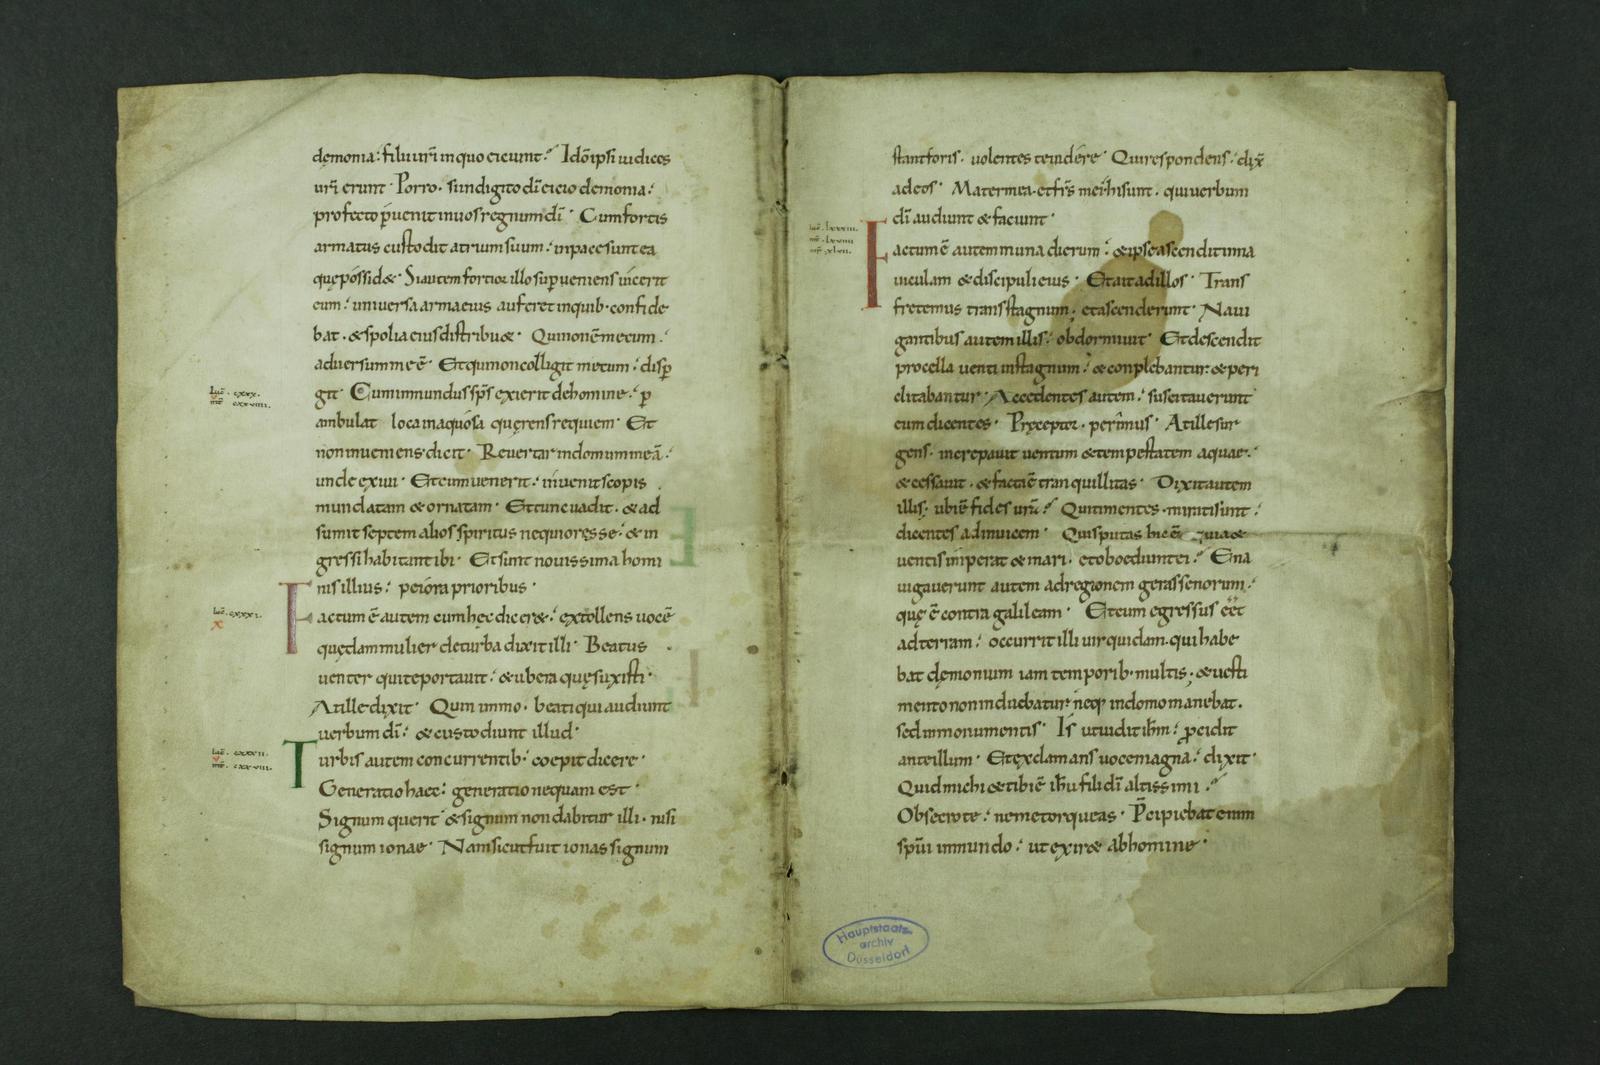 dęmonia: filii uri in quo eiciunt? Ido ipsi iudices
uri erunt. Porro. si in digito di eicio demonia:
profecto puenit in uos regnum di. Cum fortis
armatus custodit atrium suum: in pace sunt ea
quę possid&. Si autem fortior illo superueniens uicerit
eum: uniuersa arma eius auferet in quib. confide
bat. & spolia eius distribu&. Qui non ē mecum:
aduersum me ē. Et qui non colligit mecum: disp
git. Cum inmundus sps exierit de homine: p
ambulat loca inaquosa quęrens requiem. Et
non inueniens. dicit. Reuertar in domum meā:
unde exiui. Et cum uenerit: inuenit scopis
mundatam & ornatam. Et tunc uadit. & ad
sumit septem alios spiritus nequiores se: & in
gressi habitant ibi. Et sunt nouissima homi
nis illius: peiora prioribus.
luc. cxxxi.
Factum ē autem cum hęc dicer&: extollens uocē
quędam mulier de turba dixit illi. Beatus
uenter qui te portauit: & ubera quę suxisti.
At ille dixit. Quin immo. beati qui audiunt
uerbum di: & custodiunt illud.
luc. cxxxii.
mt. cxxviii.
Turbis autem concurrentib: coepit dicere.
Generatio haec: generatio nequam est.
Signum querit & signum non dabitur illi. nisi
signum ionae. Nam sicut fuit ionas signum
stant foris. uolentes te uidere. Qui respondens: dix
ad eos. Mater mea. et frs mei hi sunt. qui uerbum
di audiunt & faciunt.
luc. lxxxiii.
mt. lxviiii
mr. xlvii.
Factum ē autem in una dierum: & ipse ascendit in na
uiculam & discipuli eius. Et ait ad illos. Trans
fretemus trans stagnum: et ascenderunt. Naui
gantibus autem illis: obdormiuit. Et descendit
procella uenti in stagnum: & conplebantur: & peri
clitabantur. Accedentes autem: suscitauerunt
eum dicentes. Pręceptor. perimus. At ille sur
gens. increpauit uentum & tempestatem aquae:
& cessauit. & facta ē tranquillitas. Dixit autem
illis: ubi ē fides urā? Qui timentes. mirati sunt:
dicentes ad inuicem. Quis putas hic ē quia &
uentis inperat & mari. et oboediunt ei? Ena
uigauerunt autem ad regionem gerassenorum:
quę ē contra galileam. Et cum egressus eēt
ad terram: occurrit illi uir quidam. qui habe
bat dęmonium iam temporib. multis: & uesti
mento non induebatur. neq; in domo manebat.
sed in monumentis. Is ut uidit ihm: pcidit
ante illum. Et exclamans uoce magna: dixit.
Quid michi & tibi ē ihu fili di altissimi?
Obsecro te: ne me torqueas. Pcipiebat enim
spui inmundo: ut exir& ab homine.
Hauptstaats-
archiv
Düsseldorf